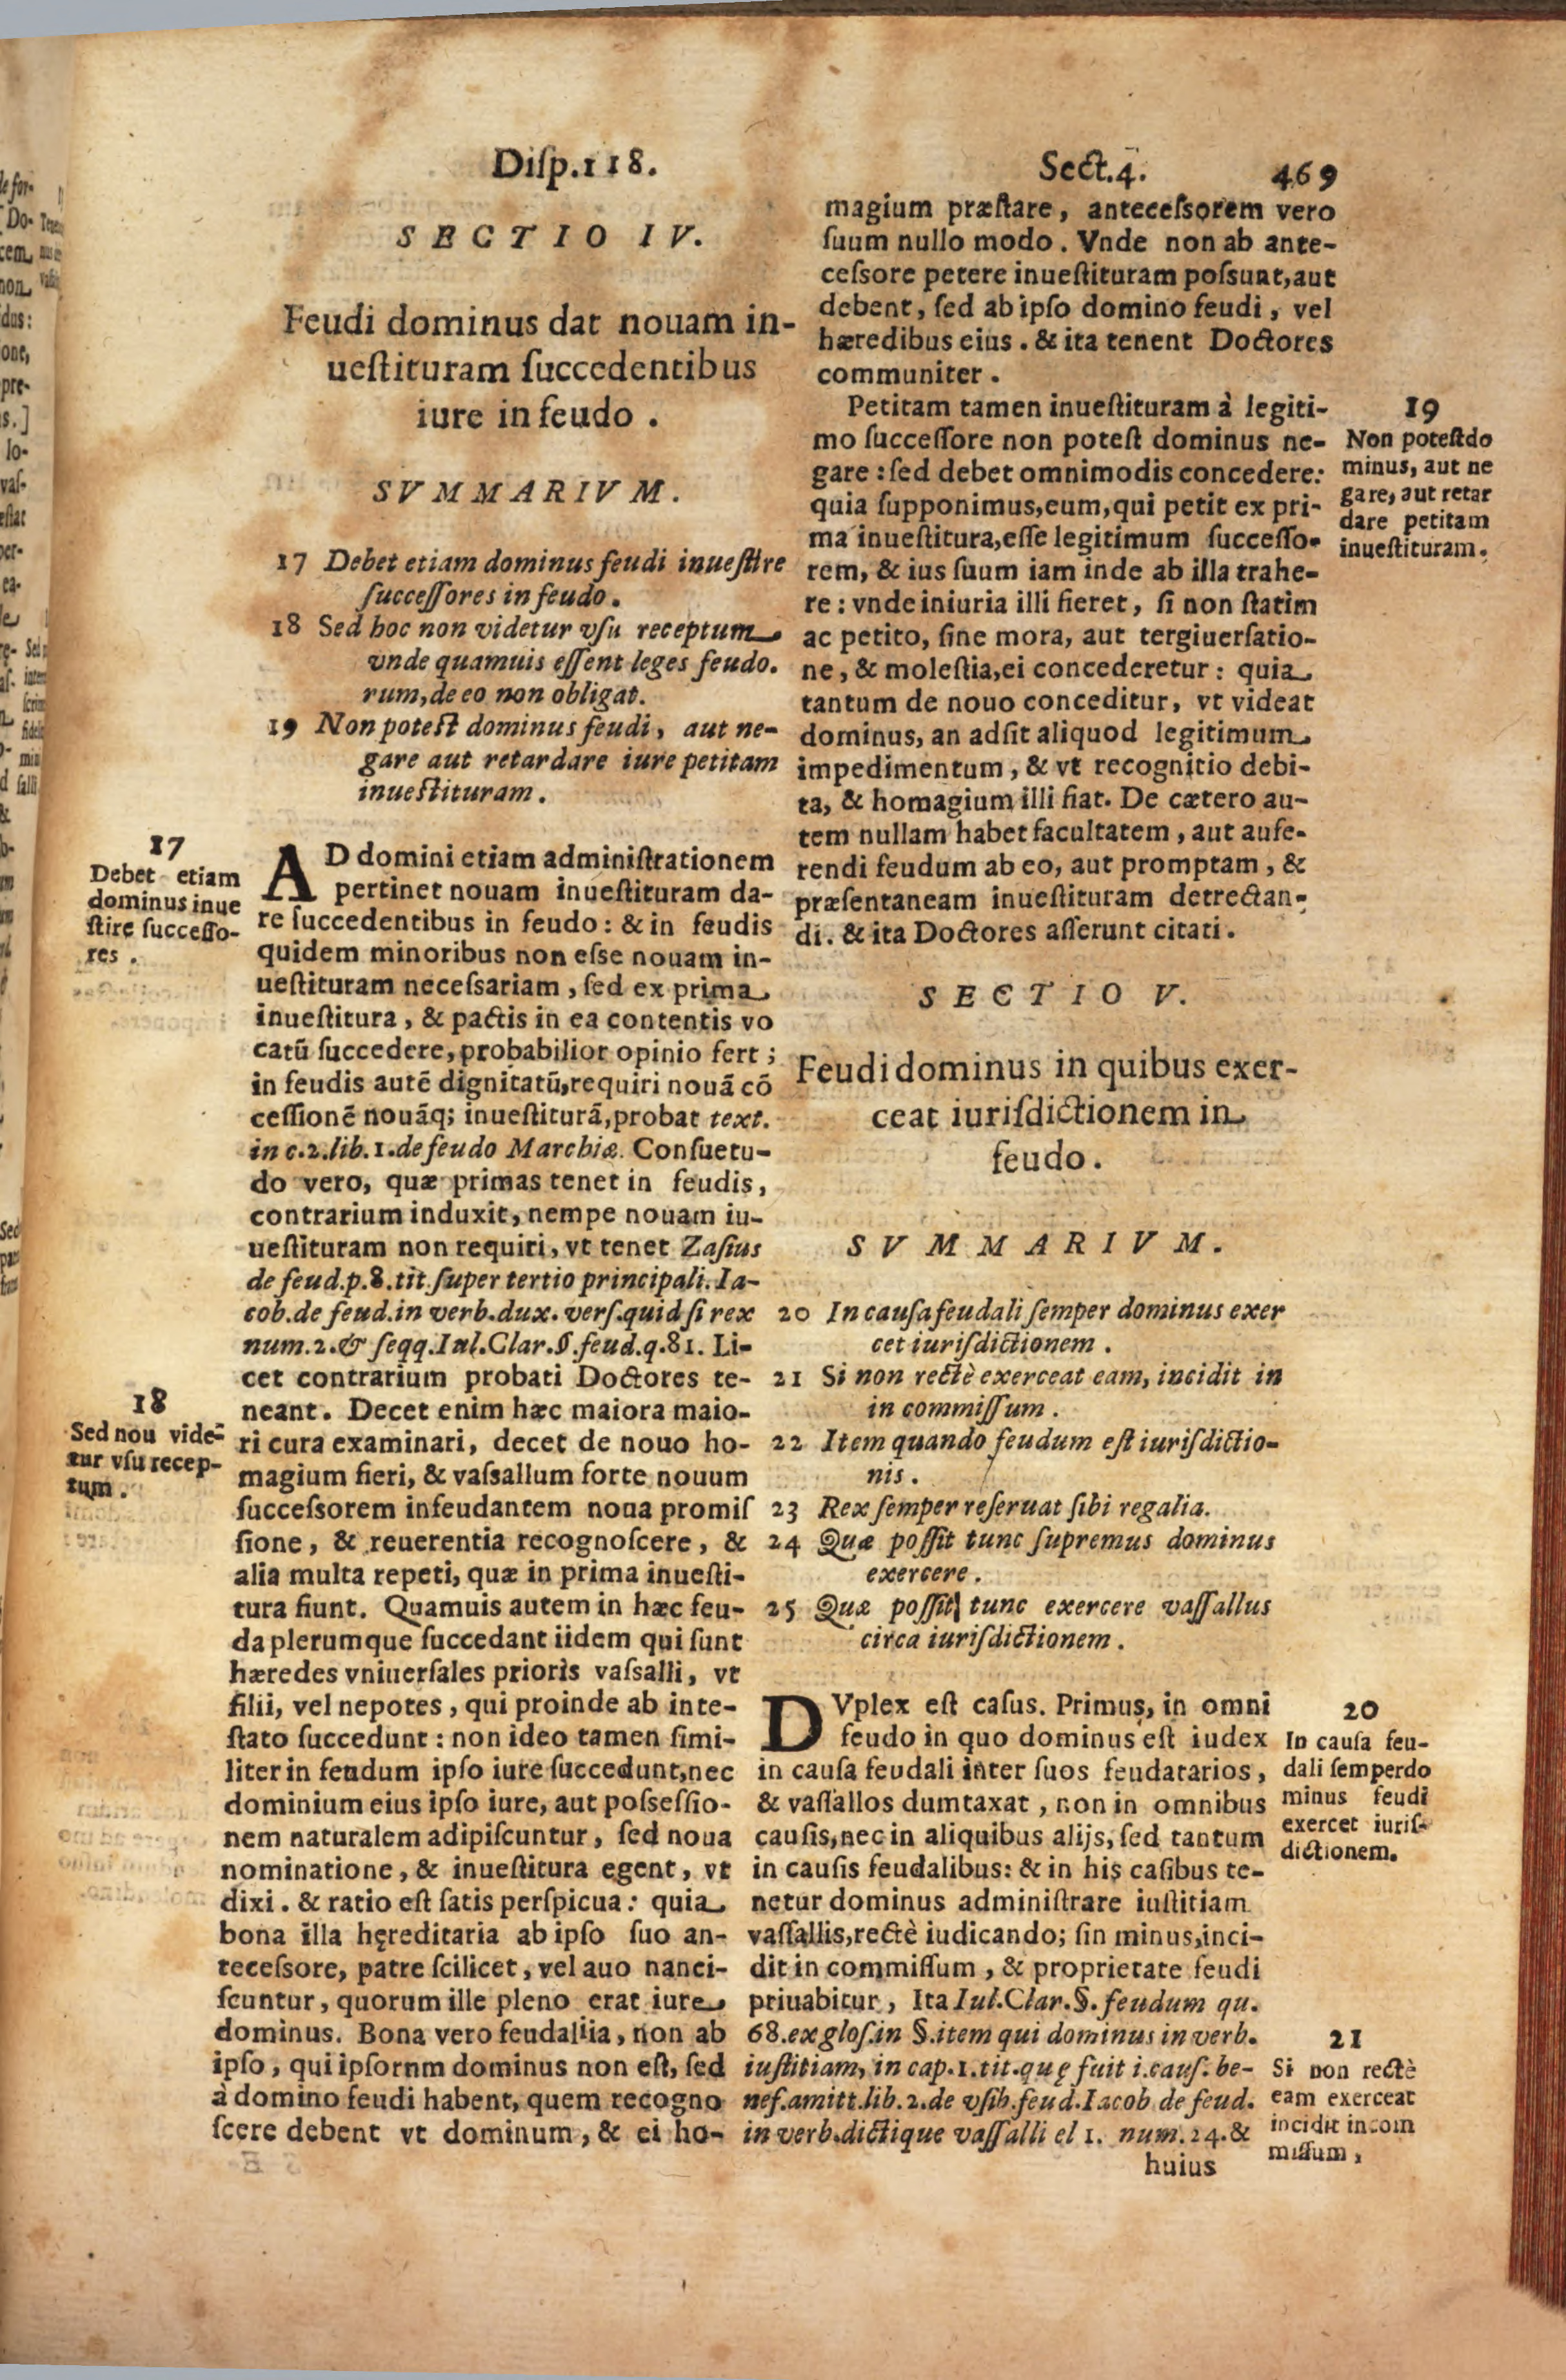 Diſp.118.
Sect.4.
469
SECTIO IV.
Feudi dominus dat nouam in-
ueſtituram ſuccedentibus
iure in feudo .
SVMMARIVM.
17 Debet etiam dominus feudi inueſtire
ſucceſſores in feudo.
18 Sed hoc non videtur vſu receptum
vnde quamuis eſſent leges feudo.
rum, de eo non obligat.
19 Non poteſt dominus feudi, aut ne-
gare aut retardare iure petitam
inueſtituram.
17
Debet etiam
dominus inue
ſtire ſucceſſo-
res .
AD domini etiam adminiſtrationem
pertinet nouam inueſtituram da-
re ſuccedentibus in feudo: & in feudis
quidem minoribus non eſse nouam in-
ueſtituram neceſsariam, ſed ex prima
inueſtitura, & pactis in ea contentis vo
catū ſuccedere, probabilior opinio fert;
in feudis autē dignitatū, requiri nouā cō
ceſſionē nouāq; inueſtiturā, probat text.
in c.2.lib.1.de feudo Marchiæ. Conſuetu-
do vero, quæ primas tenet in feudis,
contrarium induxit, nempe nouam iu-
ueſtituram non requiri, vt tenet Zaſius
de feud.p.8.tit.ſuper tertio principali. Ia-
cob.de feud.in verb.dux. verſ.quid ſi rex
num.2.& ſeqq.Iul.Clar.§.feud.q.81. Li-
cet contrarium probati Doctores te-
neant. Decet enim hæc maiora maio-
18
Sed nou vide-
tur vſu recep-
tum .
ri cura examinari, decet de nouo ho-
magium fieri, & vaſsallum forte nouum
ſucceſsorem infeudantem noua promiſ
ſione, & reuerentia recognoſcere, &
alia multa repeti, quæ in prima inueſti-
tura fiunt. Quamuis autem in hæc feu-
da plerumque ſuccedant iidem qui ſunt
hæredes vniuerſales prioris vaſsalli, vt
filii, vel nepotes, qui proinde ab inte-
ſtato ſuccedunt: non ideo tamen ſimi-
liter in feudum ipſo iure ſuccedunt, nec
dominium eius ipſo iure, aut poſseſſio-
nem naturalem adipiſcuntur, ſed noua
nominatione, & inueſtitura egent, vt
dixi. & ratio eſt ſatis perſpicua: quia
bona illa hęreditaria ab ipſo ſuo an-
teceſsore, patre ſcilicet, vel auo nanci-
ſcuntur, quorum ille pleno erat iure
dominus. Bona vero feudaliia, non ab
ipſo, qui ipſornm dominus non eſt, ſed
à domino feudi habent, quem recogno
ſcere debent vt dominum, & ei ho-
magium præſtare, anteceſsorem vero
ſuum nullo modo. Vnde non ab ante-
ceſsore petere inueſtituram poſsunt, aut
debent, ſed ab ipſo domino feudi, vel
hæredibus eius. & ita tenent Doctores
communiter.
Petitam tamen inueſtituram à legiti-
mo ſucceſſore non poteſt dominus ne-
gare: ſed debet omnimodis concedere:
quia ſupponimus, eum, qui petit ex pri-
ma inueſtitura, eſſe legitimum ſucceſſo-
rem, & ius ſuum iam inde ab illa trahe-
re: vnde iniuria illi fieret, ſi non ſtatim
ac petito, ſine mora, aut tergiuerſatio-
ne, & moleſtia, ei concederetur: quia
tantum de nouo conceditur, vt videat
dominus, an adſit aliquod legitimum
impedimentum, & vt recognitio debi-
ta, & homagium illi fiat. De cætero au-
tem nullam habet facultatem, aut aufe-
rendi feudum ab eo, aut promptam, &
præſentaneam inueſtituram detrectan-
di. & ita Doctores aſſerunt citati.
19
Non poteſt do
minus, aut ne
gare, aut retar
dare petitam
inueſtituram.
SECTIO V.
Feudi dominus in quibus exer-
ceat iuriſdictionem in
feudo.
SVMMARIVM.
20 In cauſa feudali ſemper dominus exer
cet iuriſdictionem .
21 Si non rectè exerceat eam, incidit in
in commiſſum .
22 Item quando feudum eſt iuriſdictio-
nis .
23 Rex ſemper reſeruat ſibi regalia.
24 Quæ poſſit tunc ſupremus dominus
exercere.
25 Quæ poſſit tunc exercere vaſſallus
circa iuriſdictionem.
DVplex eſt caſus. Primus, in omni
feudo in quo dominus eſt iudex
in cauſa feudali inter ſuos feudatarios,
& vaſſallos dumtaxat, non in omnibus
cauſis, nec in aliquibus alijs, ſed tantum
in cauſis feudalibus: & in his caſibus te-
netur dominus adminiſtrare iuſtitiam
vaſſallis, rectè iudicando; ſin minus, inci-
dit in commiſſum, & proprietate feudi
priuabitur, Ita Iul.Clar.§.feudum qu.
68.ex gloſ.in §.item qui dominus in verb.
iuſtitiam, in cap.1.tit.quę fuit i.cauſ. be-
nef.amitt.lib.2.de vſib.feud.Iacob de feud.
in verb.dictique vaſſalli el 1. num.24.&
20
In cauſa feu-
dali ſemper do
minus feudi
exercet iuriſ-
dictionem.
21
Si non rectè
eam exerceat
incidit in com
miſſum,
huius